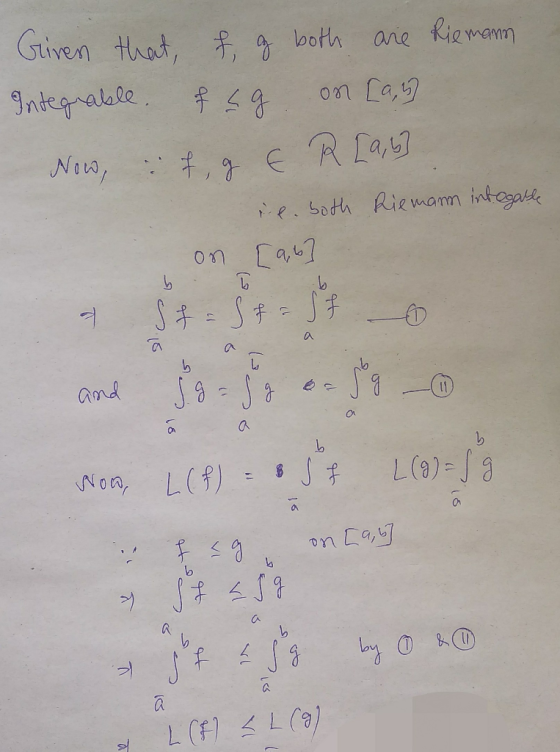 Given that, f, g both are Riemann
Integrable. f ≤ g on [a,b]
Now, ∵ f, g ∈ R [a,b]
i.e. both Riemann integable
on [a,b]
⇒ ∫_a̲^b f = ∫_a^b̅ f = ∫_a^b f —Ⓘ
and ∫_a̲^b g = ∫_a^b̅ g = ∫_a^b g —ⒾⒾ
Now, L(f) = ∫_a̲^b f L(g) = ∫_a̲^b g
∵ f ≤ g on [a,b]
⇒ ∫_a^b f ≤ ∫_a^b g
⇒ ∫_a̲^b f ≤ ∫_a̲^b g by Ⓘ & Ⓘⓘ
⇒ L(f) ≤ L(g)